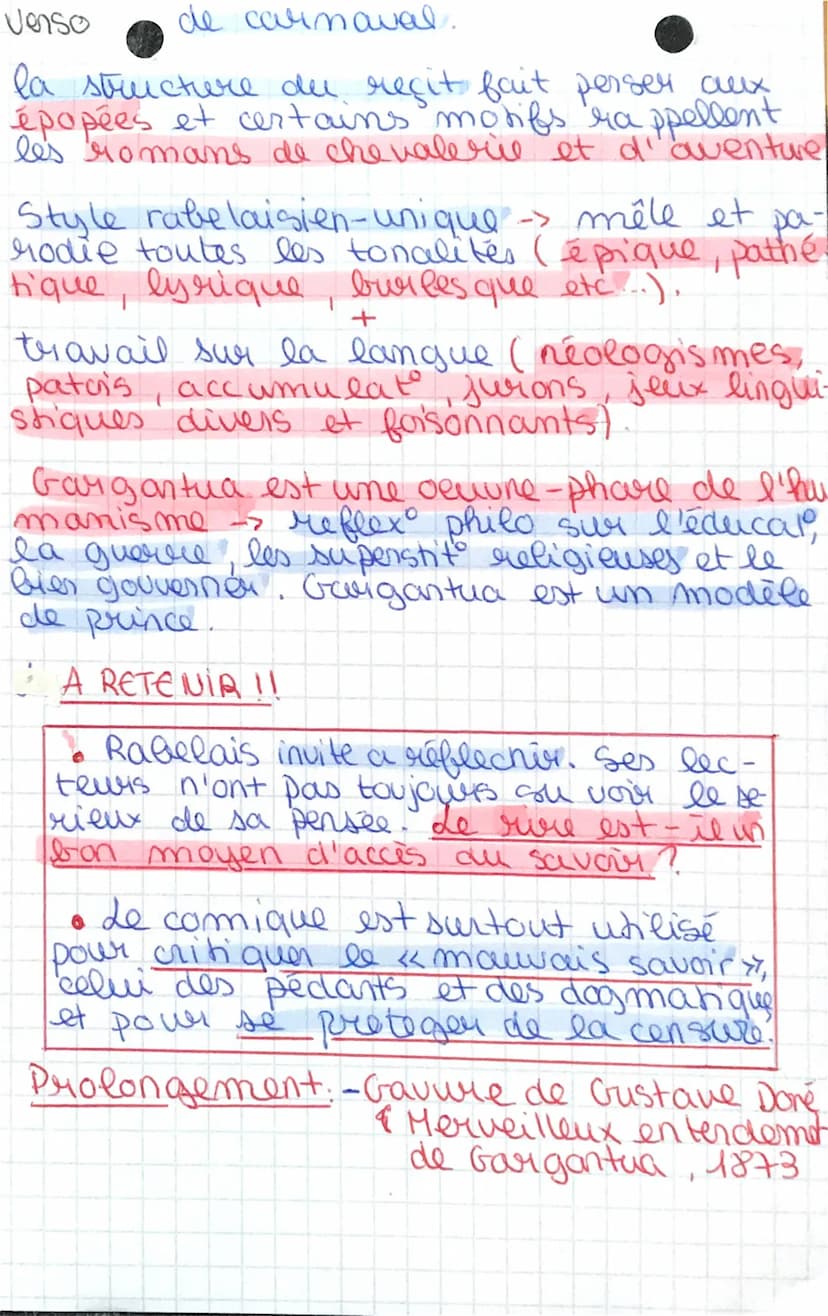 verso de carnaval.
la structure du reçit fait penser aux
épopées et certains motifs rappellent
les romans de chevalerie et d'aventure
Style rabelaisien-unique -> mêle et pa-
rodie toutes les tonalités (épique, pathé
tique, lyrique, burlesque etc...).
+
travail sur la langue (néologismes,
patois, accumulat°, jurons, jeux lingui-
stiques divers et foisonnants)
Gargantua est une oeuvre-phare de l'hu
manisme -> reflex° philo sur l'éducat°,
la guerre, les superstit° religieuses et le
bien gouverner. Gargantua est un modèle
de prince.
A RETENIR !!
• Rabelais invite a réflechir. Ses lec-
teurs n'ont pas toujours su voir le se-
rieux de sa pensée. Le rire est-il un
bon moyen d'accès au savoir ?
• Le comique est surtout utilisé
pour critiquer le « mauvais savoir »,
celui des pédants et des dogmatiques
et pour se proteger de la censure.
Prolongement: -Gavure de Gustave Doré
Merveilleux entendemt
de Gargantua, 1873